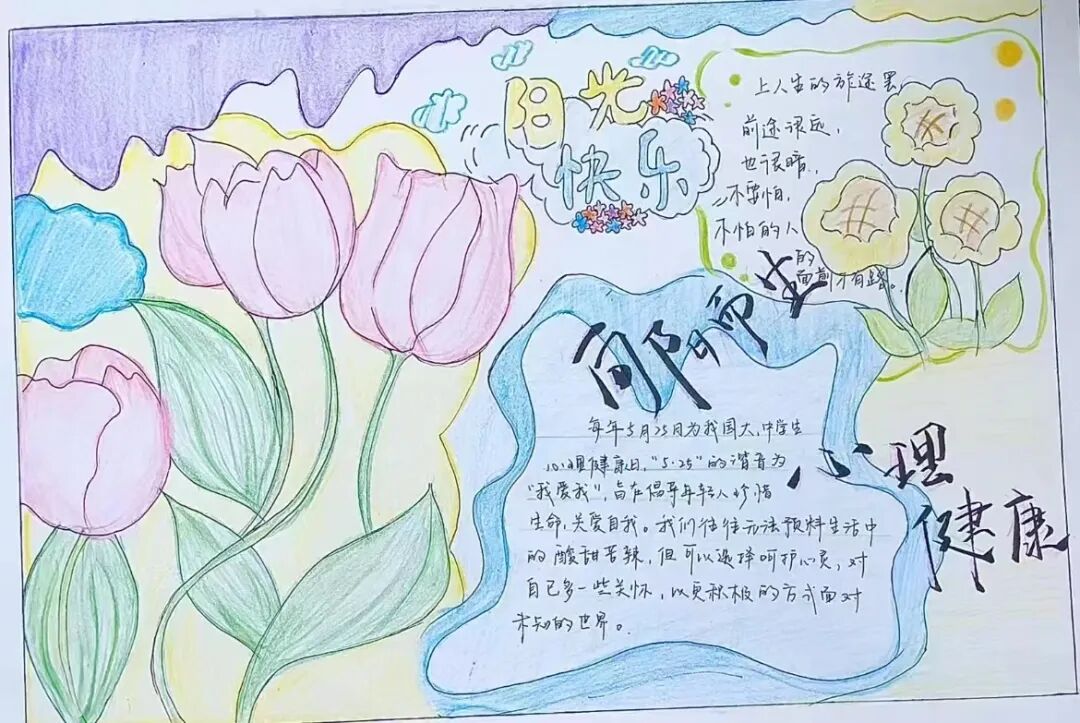 阳光
快乐
上人生的旅途罢,
前途很远,
也很暗,
不要怕,
不怕的人
的
面前才有路。
向阳而生
心理
健康
每年5月25日为我国大、中学生
心理健康日,"5·25"的谐音为
"我爱我",旨在倡导年轻人珍惜
生命,关爱自我。我们往往无法预料生活中
的酸甜苦辣,但可以选择呵护心灵,对
自己多一些关怀,以更积极的方式面对
未知的世界。